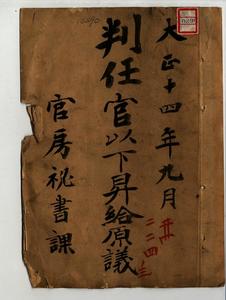 大正十四年九月
判任官以下昇給原議
官房秘書課